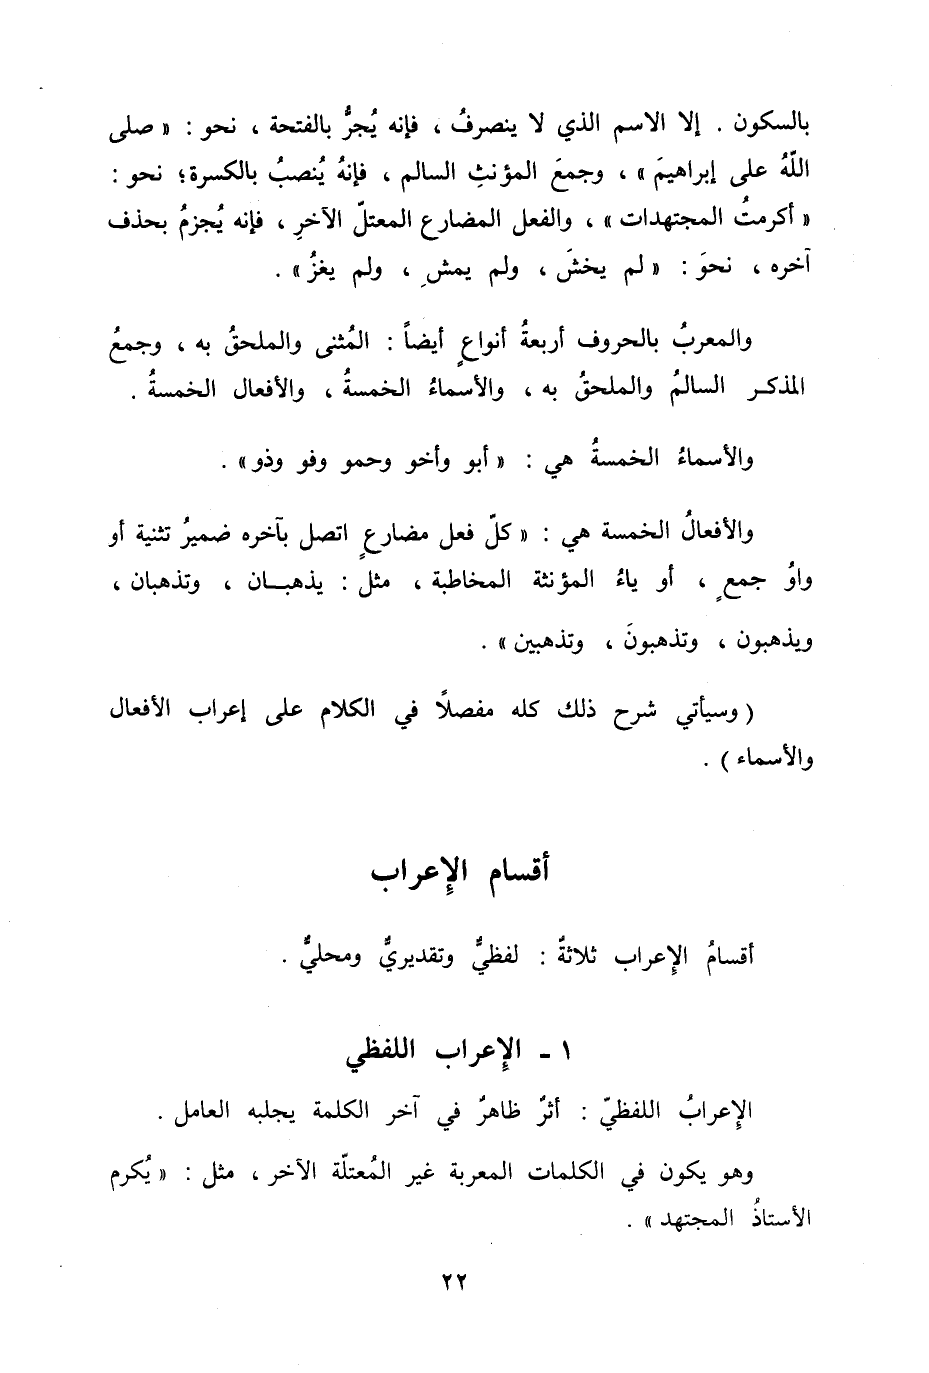 بالسكون . إلا الاسم الذي لا ينصرفُ ، فإنه يُجرُّ بالفتحة ، نحو : « صلى
اللّهُ على إبراهيمَ » ، وجمعَ المؤنثِ السالم ، فإنهُ يُنصبُ بالكسرة؛ نحو :
« أكرمتُ المجتهدات » ، والفعل المضارع المعتلّ الآخرِ ، فإنه يُجزمُ بحذف
آخره ، نحوَ : « لم يخشَ ، ولم يمشِ ، ولم يغزُ » .
والمعربُ بالحروف أربعةُ أنواعٍ أيضاً : المُثنى والملحقُ به ، وجمعُ
المذكر السالمُ والملحقُ به ، والأسماءُ الخمسةُ ، والأفعال الخمسةُ .
والأسماءُ الخمسةُ هي : « أبو وأخو وحمو وفو وذو » .
والأفعالُ الخمسة هي : « كلّ فعل مضارعٍ اتصل بآخره ضميرُ تثنية أو
واوُ جمعٍ ، أو ياءُ المؤنثة المخاطبة ، مثل : يذهبـان ، وتذهبان ،
ويذهبون ، وتذهبونَ ، وتذهبين » .
( وسيأتي شرح ذلك كله مفصلاً في الكلام على إعراب الأفعال
والأسماء ) .
أقسام الإعراب
أقسامُ الإعراب ثلاثةٌ : لفظيٌّ وتقديريٌّ ومحليٌّ .
١ - الإعراب اللفظي
الإعرابُ اللفظيّ : أثرٌ ظاهرٌ في آخر الكلمة يجلبه العامل .
وهو يكون في الكلمات المعربة غير المُعتلّة الآخر ، مثل : « يُكرم
الأستاذُ المجتهد » .
٢٢